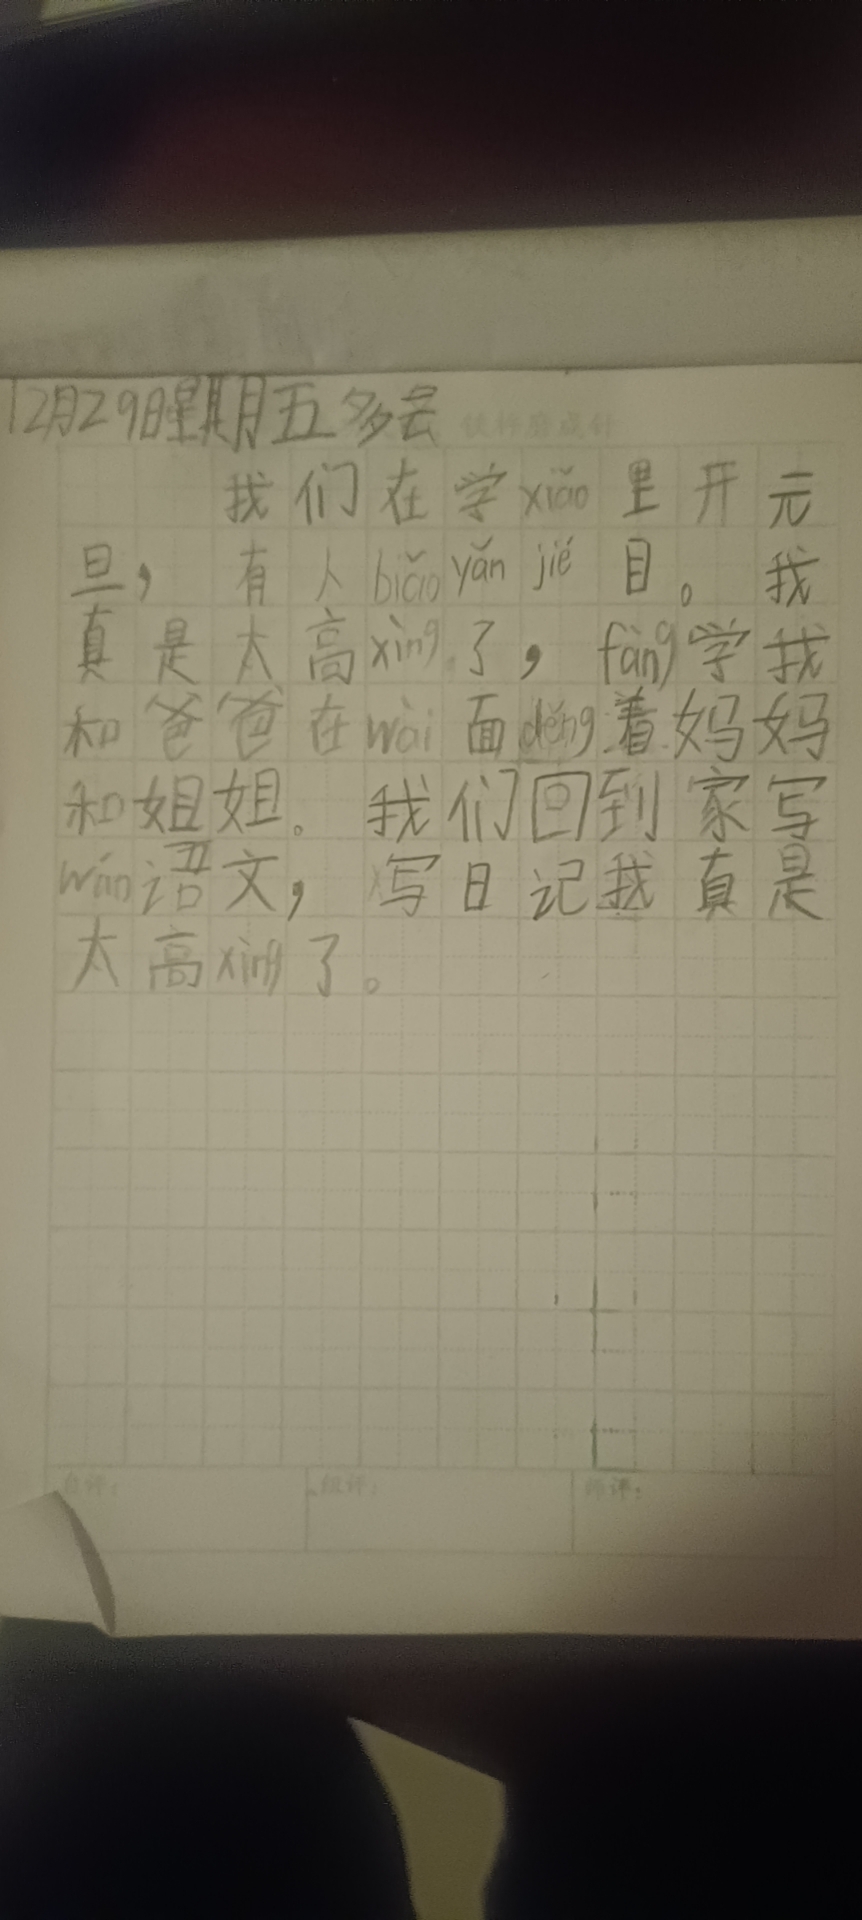 12月29日星期五多云
我们在学xiǎo里开元
旦，有人biǎoyǎnjié目。我
真是太高xìng了，fàng学我
和爸爸在wài面děng着妈妈
和姐姐。我们回到家写
wán语文，写日记我真是
太高xìng了。
自评：
组评：
师评：